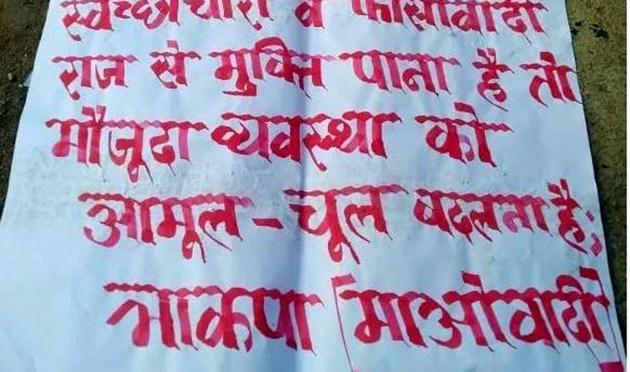 स्वेच्छाचारी व फासीवादी
राज से मुक्ति पाना है तो
मौजूदा व्यवस्था को
आमूल-चूल बदलना है;
भाकपा [माओवादी]